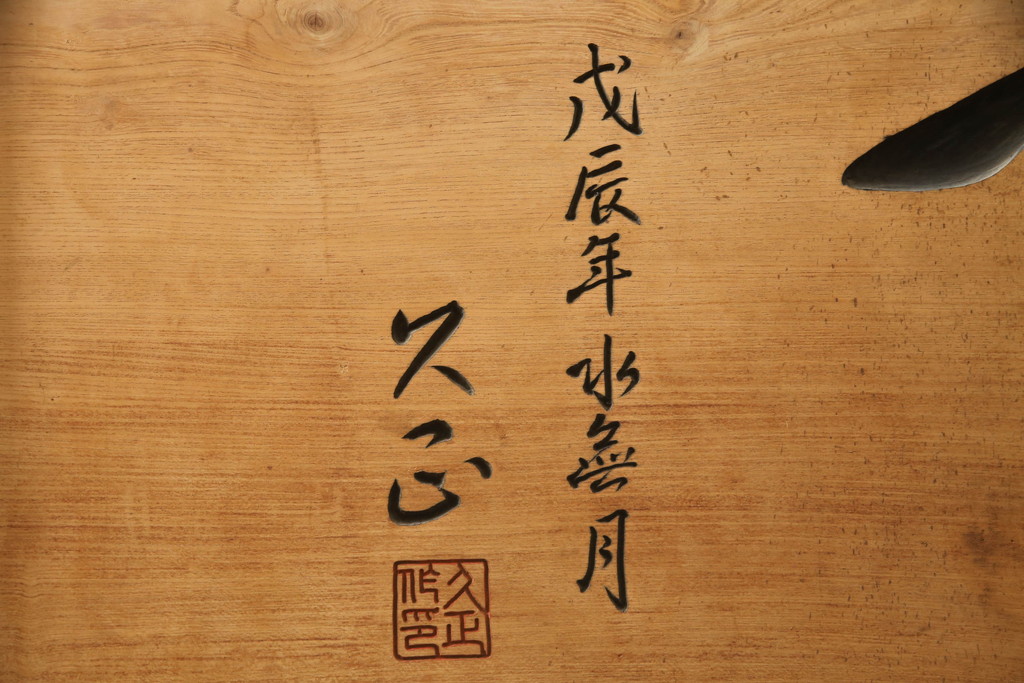 戊辰年水無月
久正
久正作印